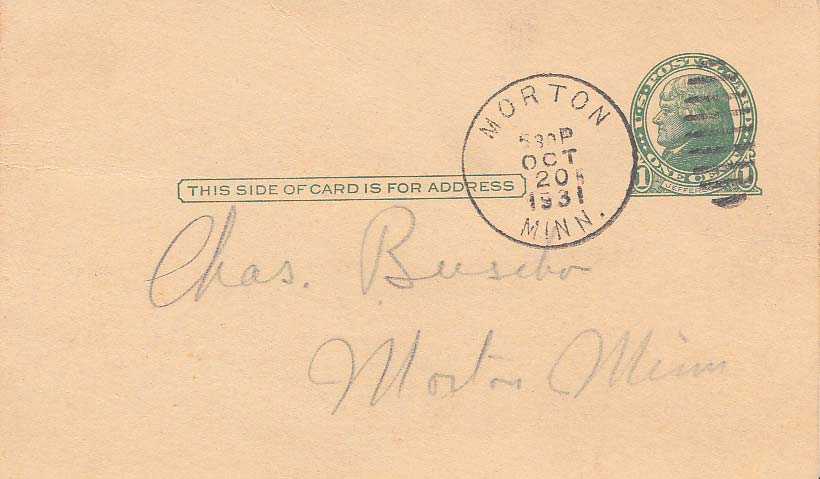 U.S. POSTAL CARD
MORTON
530P
OCT
20
1931
MINN.
1 ONE CENT 1
JEFFERSON
THIS SIDE OF CARD IS FOR ADDRESS
Chas.
Morton Minn